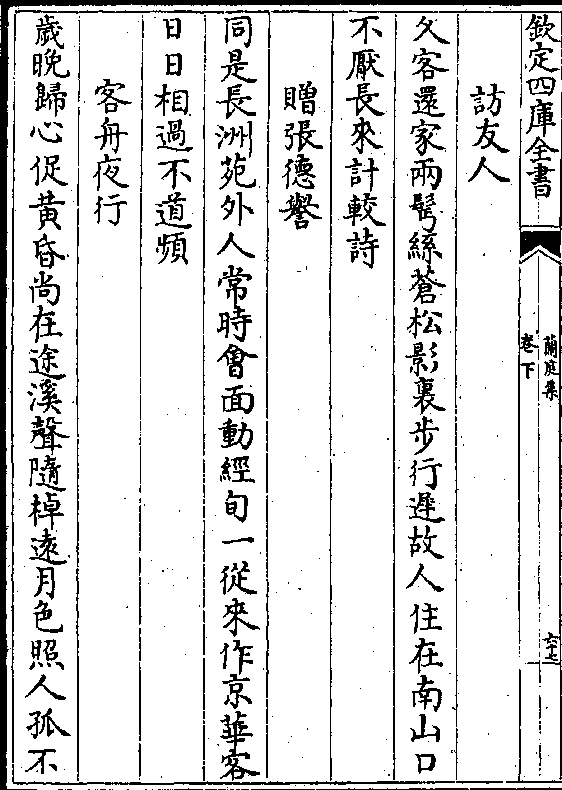 欽定四庫全書
蘭庭集
卷下
六十七
訪友人
久客還家兩鬂絲蒼松影裏步行遲故人住在南山口
不厭長來計較詩
贈張德譽
同是長洲苑外人常時會面動經旬一從來作京華客
日日相過不道頻
客舟夜行
歲晚歸心促黃昏尚在途溪聲隨棹遠月色照人孤不